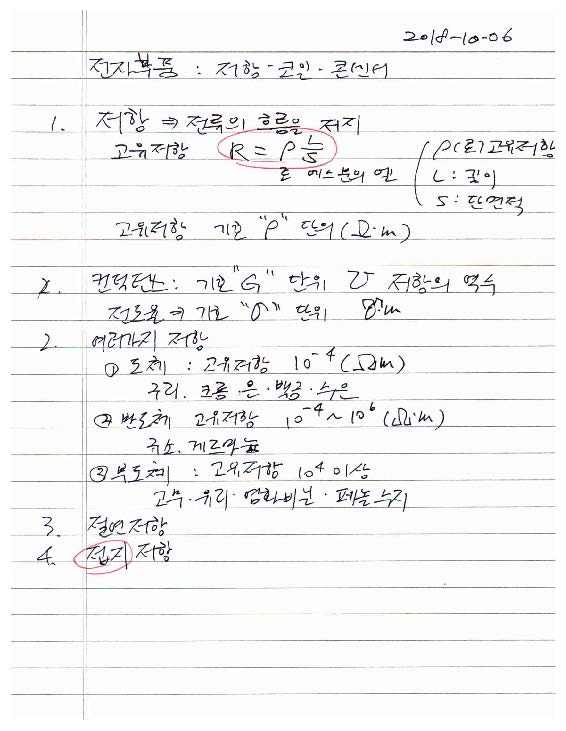 2018-10-06
전자부품 : 저항·코일·콘센서
1. 저항 ⇒ 전류의 흐름을 저지
고유저항 R = ρ L/S ρ(로)고유저항
로 에스분의 엘 L : 길이
S : 단면적
고유저항 기호 "ρ" 단위 (Ω·m)
2. 컨덕턴스 : 기호 "G" 단위 ℧ 저항의 역수
전도율 ⇒ 기호 "σ" 단위 ℧·m
2. 여러가지 저항
① 도체 : 고유저항 10⁻⁴ (Ωm)
구리. 크롬·은·백금·수은
② 반도체 고유저항 10⁻⁴ ~ 10⁶ (Ω·m)
규소. 게르마늄
③ 부도체 : 고유저항 10⁴ 이상
고무·유리·염화비닐·페놀수지
3. 절연저항
4. 접지저항